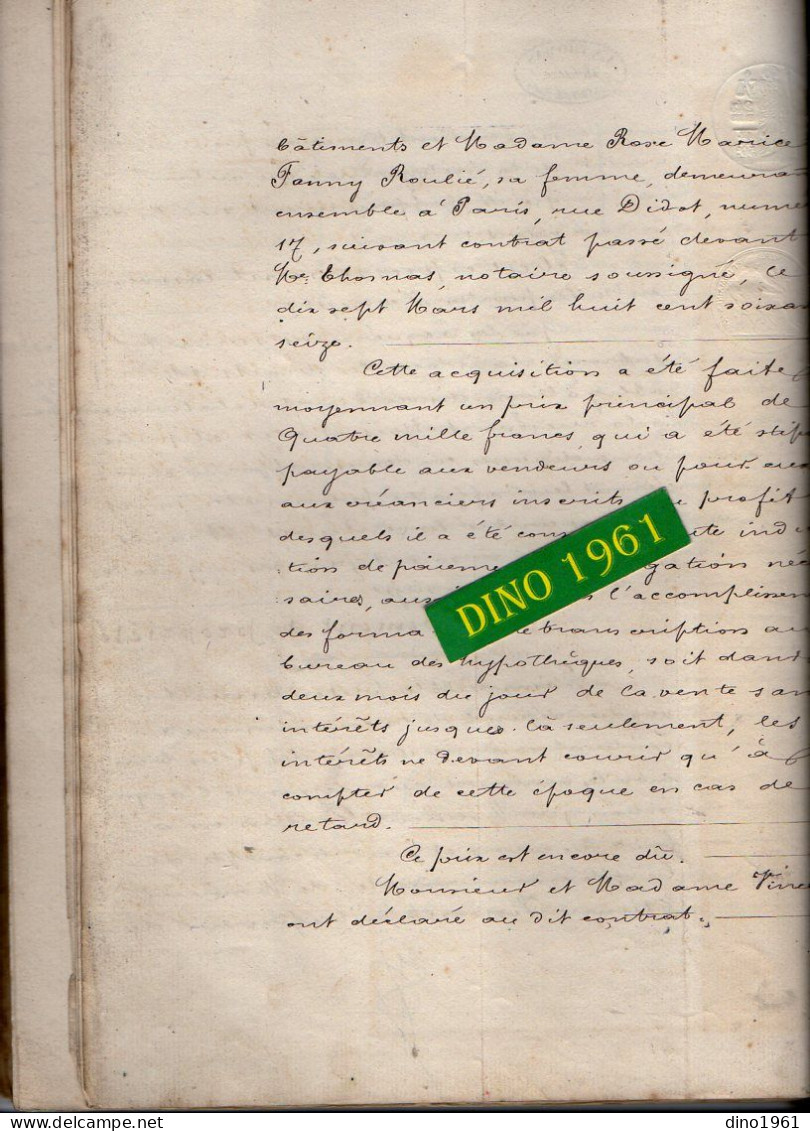 bâtiments et Madame Rose Marie
Fanny Roulié, sa femme, demeura
ensemble à Paris, rue Didot, numé
17, suivant contrat passé devant
Me Thomas, notaire soussigné, le
dix sept Mars mil huit cent soixan
seize.
Cette acquisition a été faite
moyennant un prix principal de
Quatre mille francs, qui a été stip
payable aux vendeurs ou pour eux
aux créanciers inscrits profit
desquels il a été cons te indi
tion de paieme gation néc
saires, aus l'accomplissem
des forma de transcription au
bureau des hypothèques, soit dans
deux mois du jour de la vente san
intérêts jusques là seulement, les
intérêts ne devant courir qu'à
compter de cette époque en cas de
retard.
Ce prix est encore dû.
Monsieur et Madame Vince
ont déclaré au dit contrat.
DINO 1961
dino1961